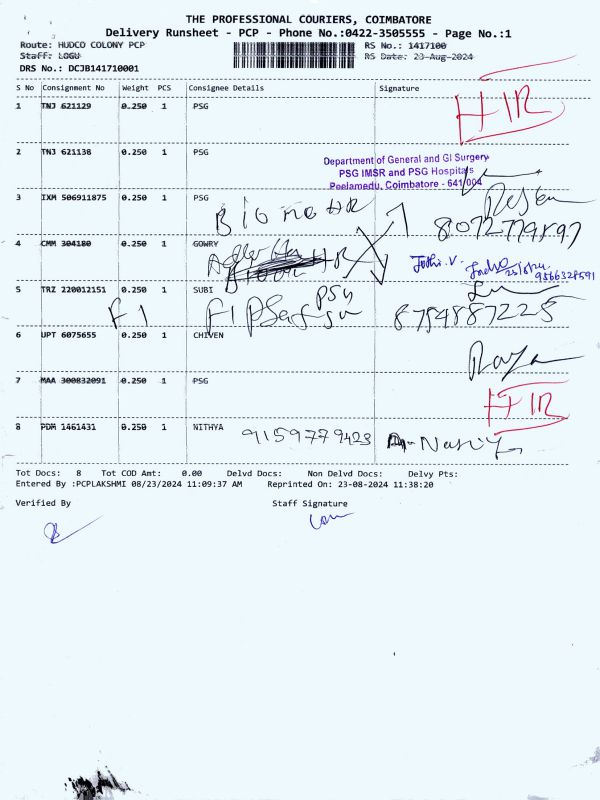 THE PROFESSIONAL COURIERS, COIMBATORE
Delivery Runsheet - PCP - Phone No.:0422-3505555 - Page No.:1
Route: HUDCO COLONY PCP RS No.: 1417100
Staff: LOGU RS Date: 23-Aug-2024
DRS No.: DCJB141710001
S No Consignment No Weight PCS Consignee Details Signature
1 TNJ 621129 0.250 1 PSG
HIR
2 TNJ 621138 0.250 1 PSG
Department of General and GI Surgery
PSG IMSR and PSG Hospitals
Peelamedu, Coimbatore - 641 004
3 IXM 506911875 0.250 1 PSG
8072779897
4 CMM 304180 0.250 1 GOWRY
HR
Jothi.V.
9566328591
5 TRZ 220012151 0.250 1 SUBI
psg
F1 F1
8754887225
6 UPT 6075655 0.250 1 CHIVEN
7 MAA 300832091 0.250 1 PSG
HIR
8 PDM 1461431 0.250 1 NITHYA
9159779423
Tot Docs: 8 Tot COD Amt: 0.00 Delvd Docs: Non Delvd Docs: Delvy Pts:
Entered By :PCPLAKSHMI 08/23/2024 11:09:37 AM Reprinted On: 23-08-2024 11:38:20
Verified By Staff Signature